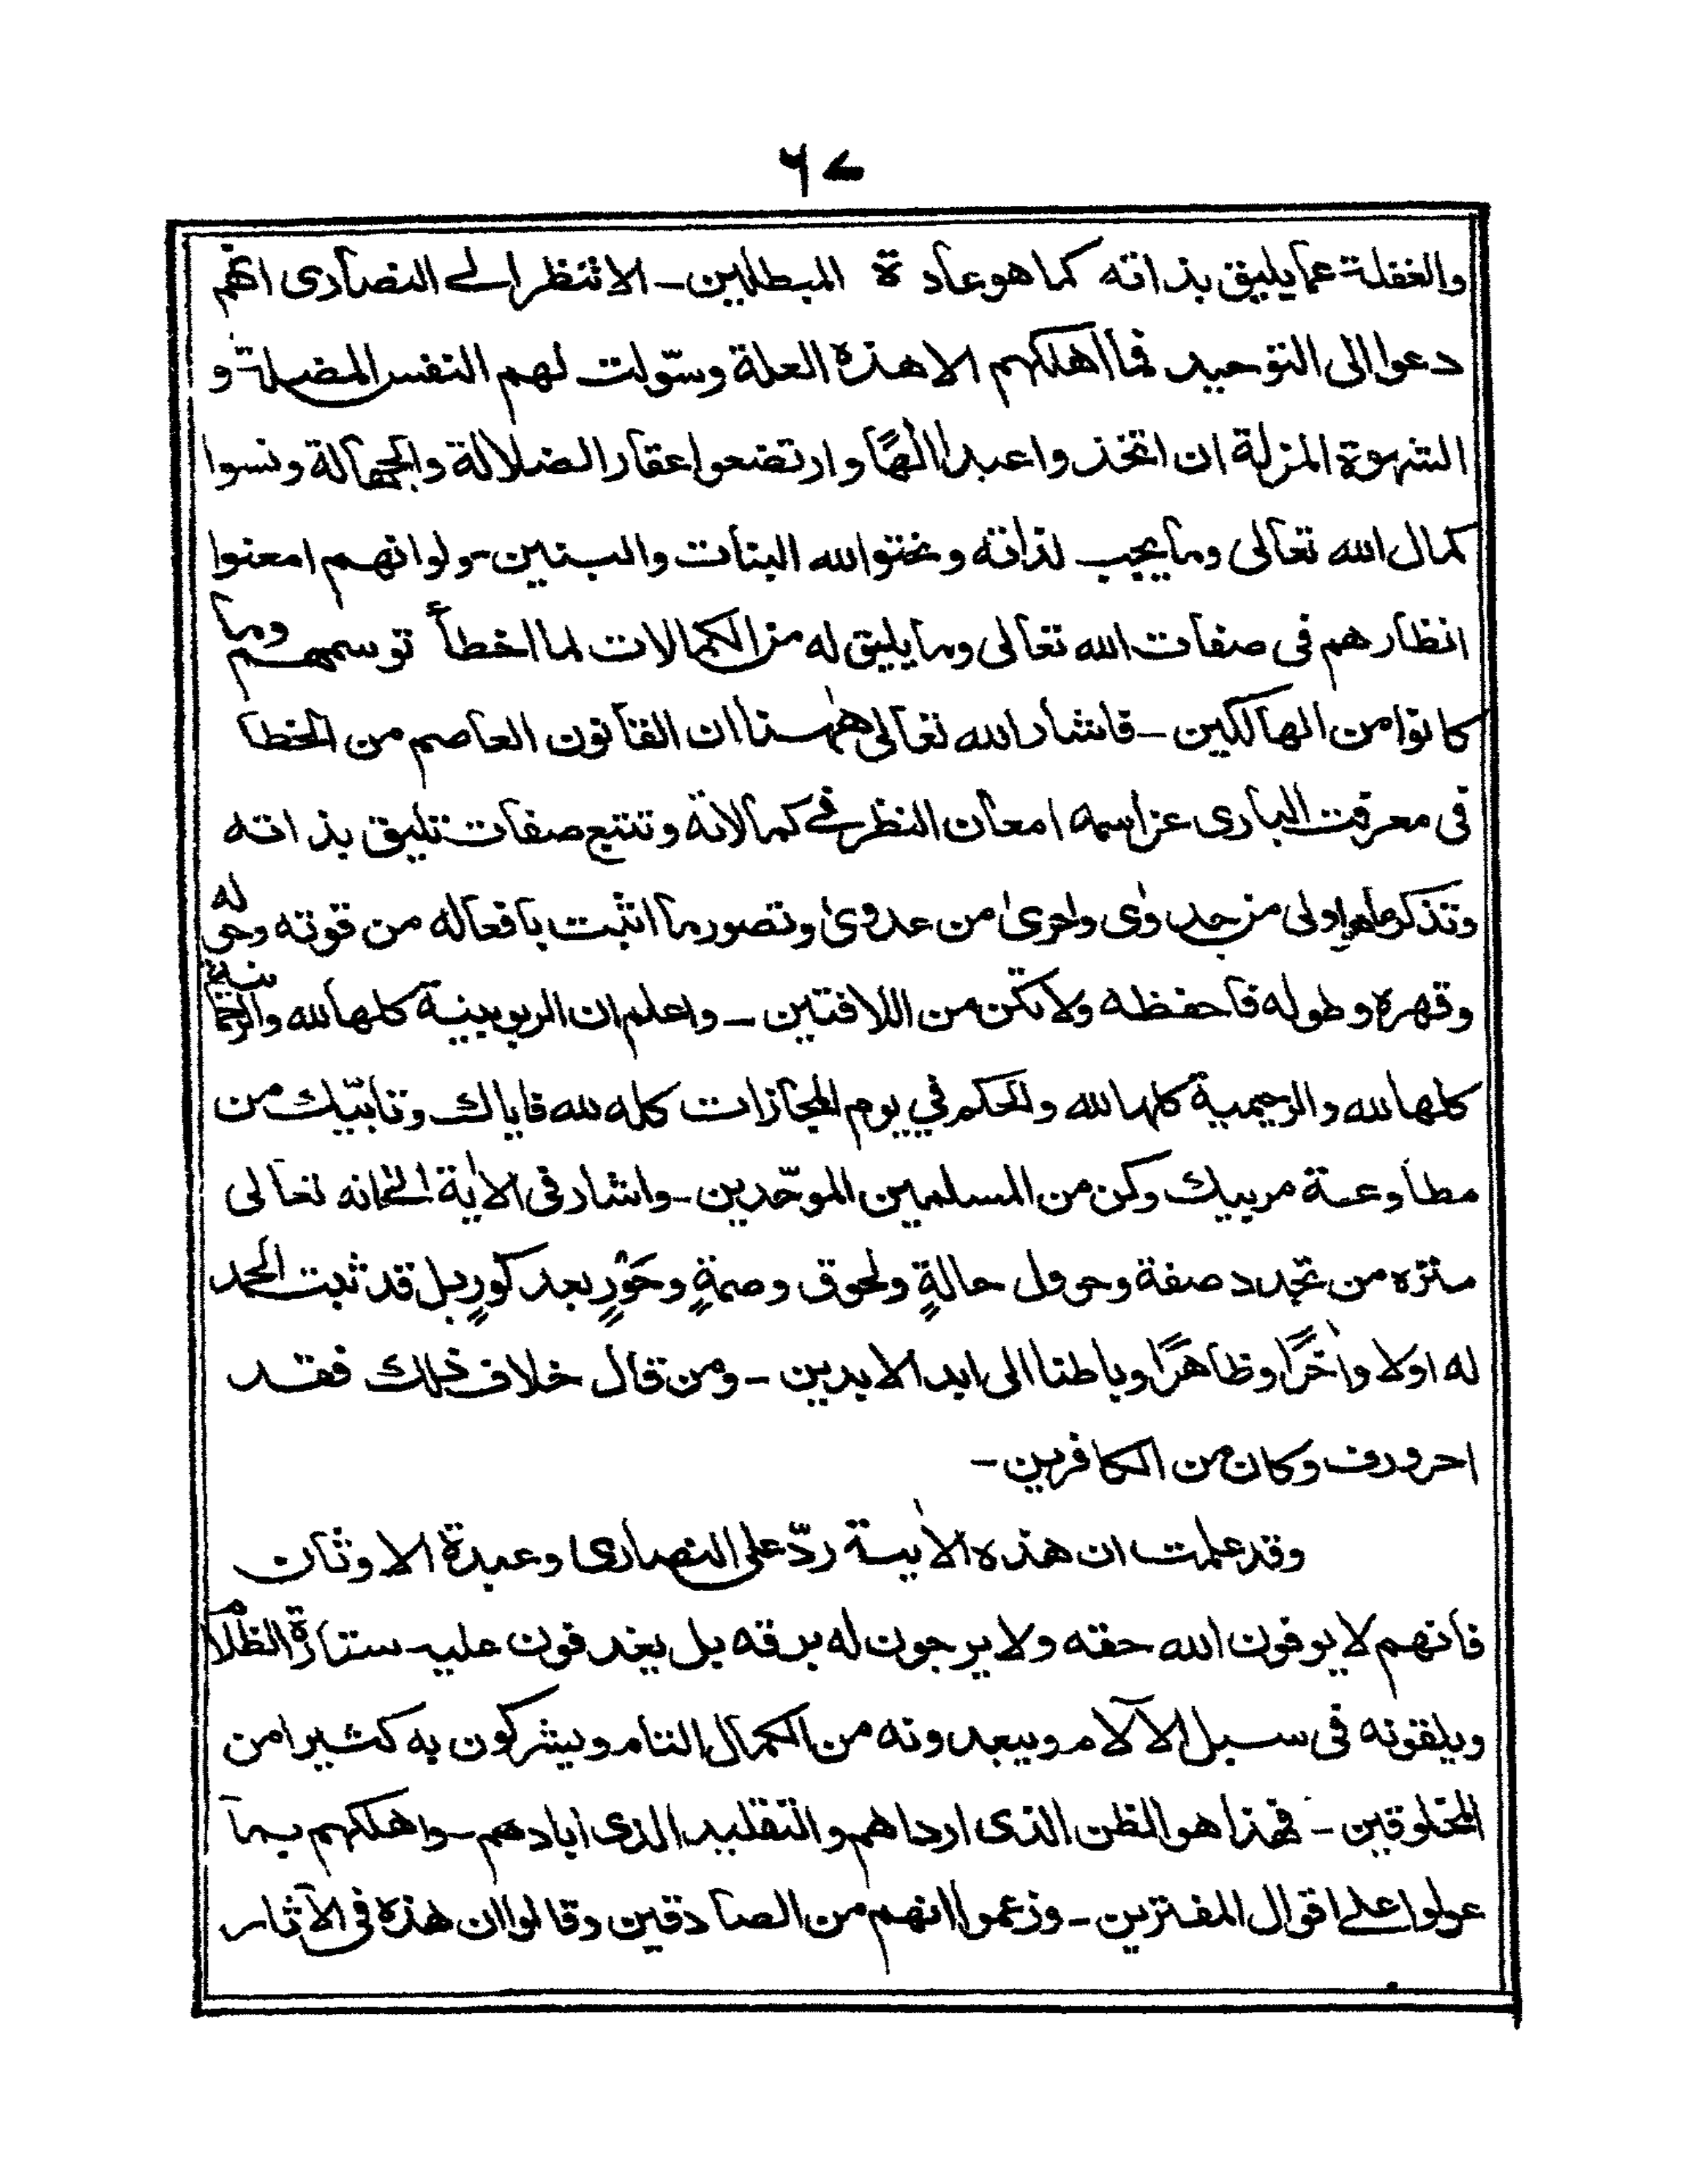 ٦٧
والغفلة عما يليق بذاته كما هو عادة المبطلين - الا تنظر الى النصارى انهم
دعوا الى التوحيد فما اهلكهم الا هذه العلة وسوّلت لهم النفس المضلة و
الشهوة المزلة ان اتخذوا عبدا الٰهًا وارتضعوا عقار الضلالة والجهالة ونسوا
كمال الله تعالى وما يجب لذاته ونحتوا لله البنات والبنين - ولو انهم امعنوا
انظارهم فى صفات الله تعالى وما يليق له من الكمالات لما اخطأ توسمهم وما
كانوا من الهالكين - فاشار الله تعالى ههنا ان القانون العاصم من الخطأ
فى معرفت البارى عز اسمه امعان النظر فى كمالاته وتتبع صفات تليق بذاته
وتذكر ما هو اولى من جدوٰى واحرىٰ من عدوىٰ وتصور ما اثبت بافعاله من قوته وحوله
وقهره وطوله فاحفظه ولا تكن من اللافتين - واعلم ان الربوبية كلها لله والرحمانية
كلها لله والرحيمية كلها لله والحكم في يوم المجازات كله لله فاياك وتأبّيك من
مطاوعة مربيك وكن من المسلمين الموحّدين - واشار فى الاٰية الى انه تعالى
منزه من تجدد صفة وحوول حالةٍ ولحوق وصمةٍ وحَوْرٍ بعد كورٍ بل قد ثبت الحمد
له اولا واٰخرًا وظاهرًا وباطنا الى ابد الابدين - ومن قال خلاف ذلك فقد
احرورف وكان من الكافرين -
وقد علمت ان هذه الاٰية ردّ على النصارى وعبدة الاوثان
فانهم لا يوفون الله حقه ولا يرجون له برقه بل يغدفون عليه ستارة الظلام
ويلقونه فى سبل الآلام ويبعدونه من الكمال التام ويشركون به كثيرا من
المخلوقين - فهذا هو الظن الذى ارداهم والتقليد الذى ابادهم - واهلكهم بما
عولوا على اقوال المفترين - وزعموا انهم من الصادقين وقالوا ان هذه فى الآثار